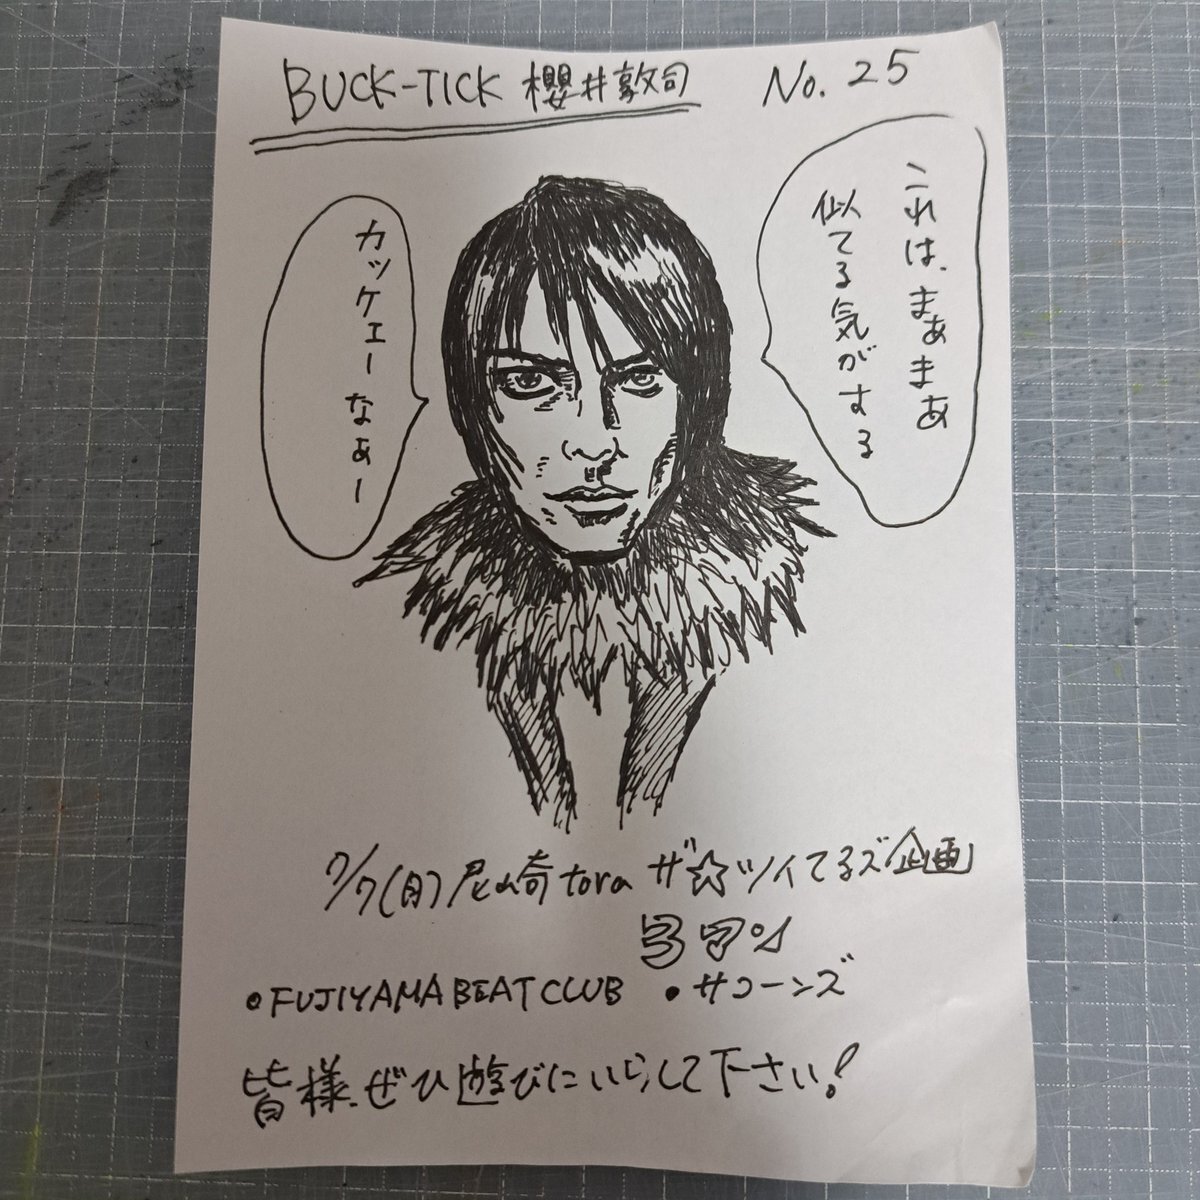 BUCK-TICK 櫻井敦司 No. 25
これは、まあまあ
似てる気がする
カッケェーなぁー
7/7(月)尼崎tora ザ☆ツイてるズ企画
3マン
•FUJIYAMA BEAT CLUB •サコーンズ
皆様、ぜひ遊びにいらして下さい!